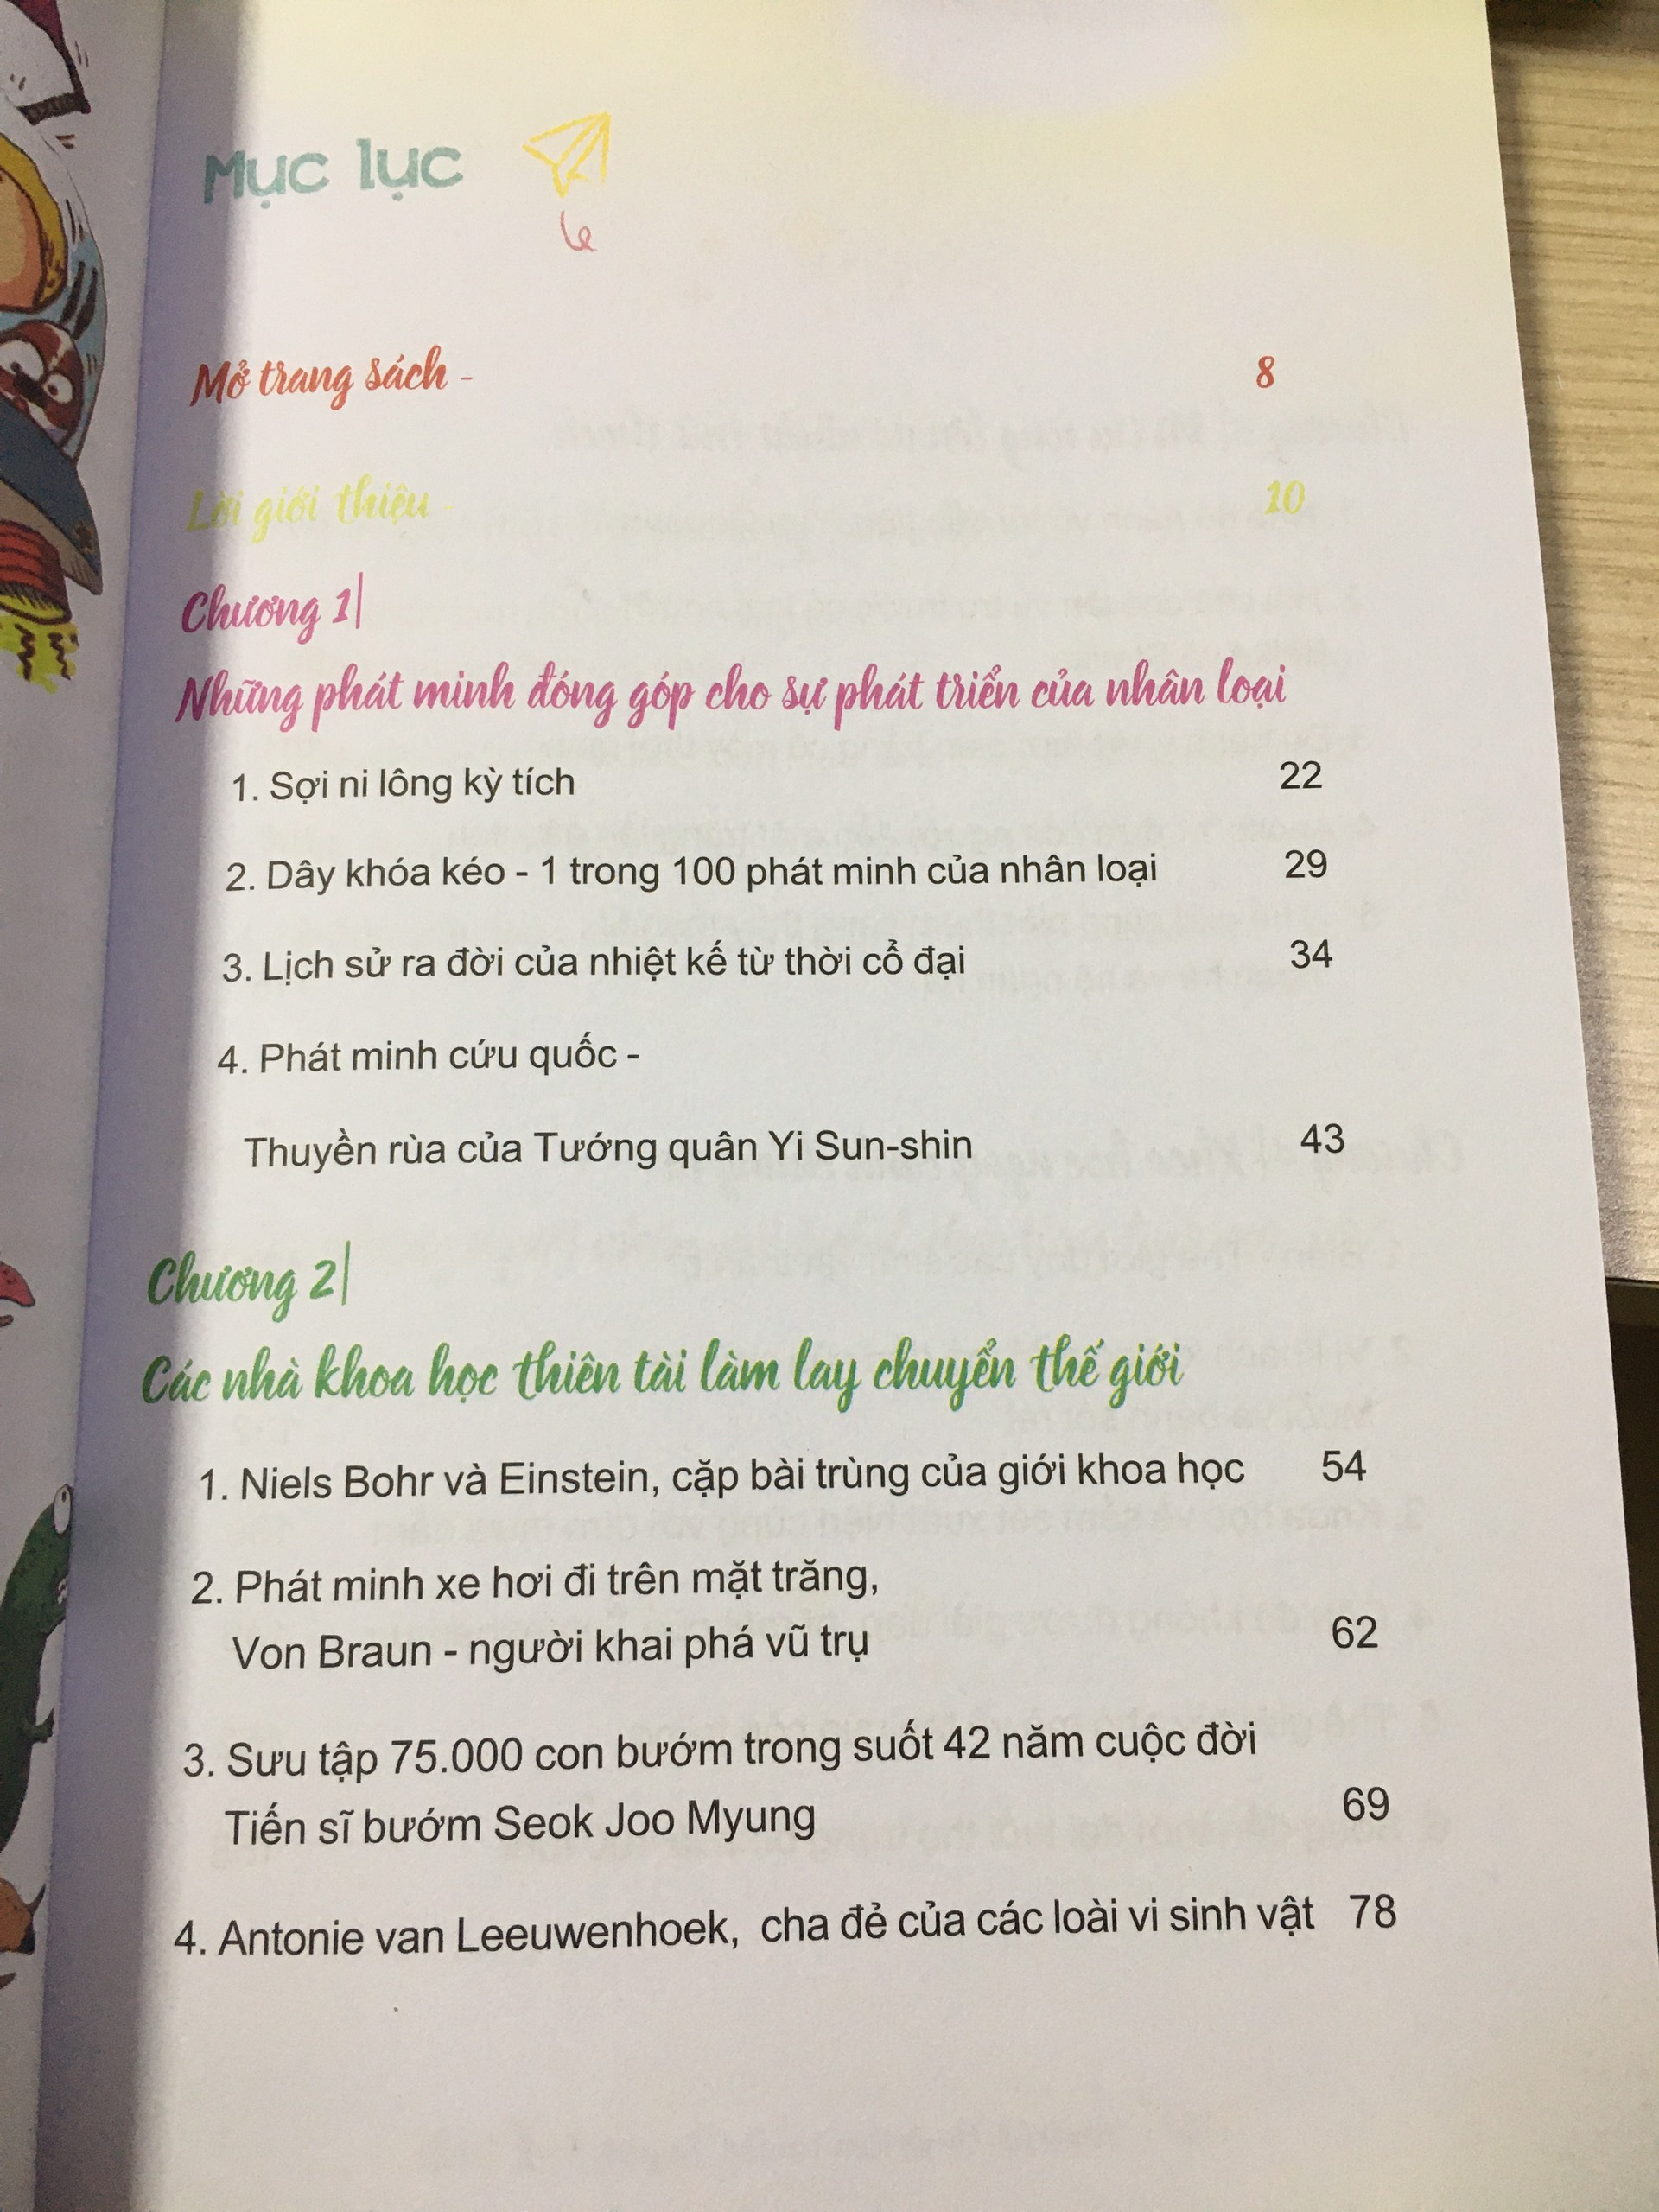 Mục lục
Mở trang sách - 8
Lời giới thiệu - 10
Chương 1|
Những phát minh đóng góp cho sự phát triển của nhân loại
1. Sợi ni lông kỳ tích 22
2. Dây khóa kéo - 1 trong 100 phát minh của nhân loại 29
3. Lịch sử ra đời của nhiệt kế từ thời cổ đại 34
4. Phát minh cứu quốc -
Thuyền rùa của Tướng quân Yi Sun-shin 43
Chương 2|
Các nhà khoa học thiên tài làm lay chuyển thế giới
1. Niels Bohr và Einstein, cặp bài trùng của giới khoa học 54
2. Phát minh xe hơi đi trên mặt trăng,
Von Braun - người khai phá vũ trụ 62
3. Sưu tập 75.000 con bướm trong suốt 42 năm cuộc đời
Tiến sĩ bướm Seok Joo Myung 69
4. Antonie van Leeuwenhoek, cha đẻ của các loài vi sinh vật 78